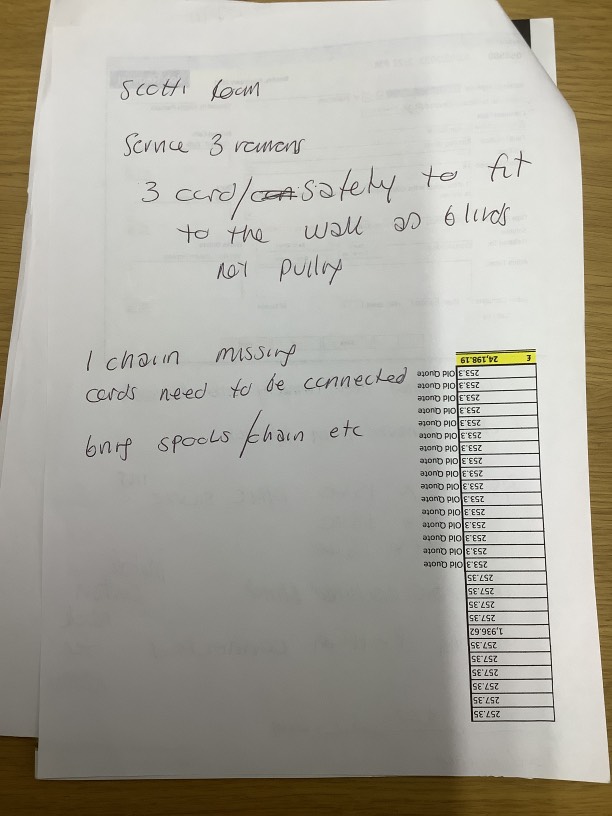 Scotti Room
Service 3 romans
3 cord/safety to fit
to the wall as blinds
not pulling
1 chain missing
cords need to be connected
bring spools/chain etc
257.35
257.35
257.35
257.35
257.35
257.35
1,936.62
257.35
257.35
257.35
257.35
253.3 Old Quote
253.3 Old Quote
253.3 Old Quote
253.3 Old Quote
253.3 Old Quote
253.3 Old Quote
253.3 Old Quote
253.3 Old Quote
253.3 Old Quote
253.3 Old Quote
253.3 Old Quote
253.3 Old Quote
253.3 Old Quote
253.3 Old Quote
253.3 Old Quote
253.3 Old Quote
£ 24,198.19